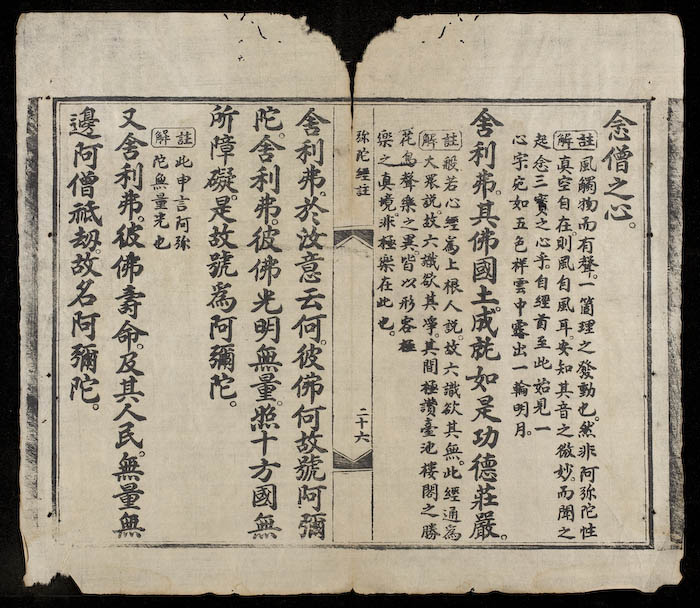 念僧之心。
註解 風觸物而有聲。一箇理之發動也。然非阿弥陀性
真空自在。則風自風耳。安知其音之微妙。而聞之
起念三寳之心乎。自經首至此始見。一
心宗宛如五色祥雲中露出一輪明月。
舍利弗。其佛國土。成就如是功德莊嚴。
註解 般若心經爲上根人説。故六識欲其無。此經通爲
大衆説。故六識欲其凈。其間極讃臺池樓閣之勝
花鳥聲樂之異。皆以形容極
樂之真境。非極樂在此也。
弥陀經註
二十六
舍利弗。於汝意云何。彼佛何故號阿彌
陀。舍利弗。彼佛光明無量。照十方國無
所障礙。是故號爲阿彌陀。
註解 此申言阿弥
陀無量光也
又舍利弗。彼佛壽命。及其人民。無量無
邊阿僧祇劫。故名阿彌陀。